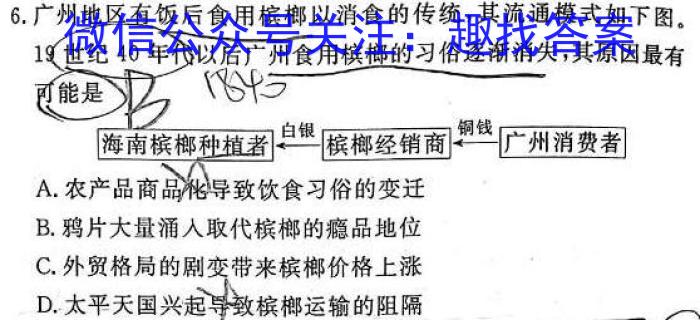 6.广州地区有饭后食用槟榔以消食的传统,其流通模式如下图。
微信公众号关注：趣找答案
19世纪40年代以后广州食用槟榔的习俗逐渐消失,其原因最有
可能是
B
1840
海南槟榔种植者 白银 槟榔经销商 铜钱 广州消费者
A.农产品商品化导致饮食习俗的变迁
B.鸦片大量涌入取代槟榔的瘾品地位
C.外贸格局的剧变带来槟榔价格上涨
D.太平天国兴起导致槟榔运输的阻隔